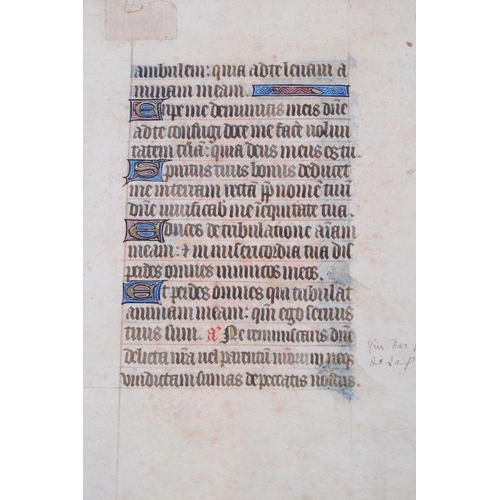 ambulem: quia ad te levavi a
nimam meam.
Eripe me de inimicis meis dñe
ad te confugi doce me facē volun
tatem tuã: quia deus meus es tu.
Spiritus tuus bonus deducet
me in terram rectã ꝑp nomē tuũ
dñe vivificab me ĩ equitate tua.
Educes de tribulatione aĩam
meam: ⁊ in misericordia tua dis
perdes omnes inimicos meos.
Et perdes omnes qui tribulãt
animam meam: qm̃ ego servus
tuus sum. a. Ne reminiscaris dñe
delicta nr̃a vel parentũ nr̃orum neq;
vindictam sumas de peccatis nostris.